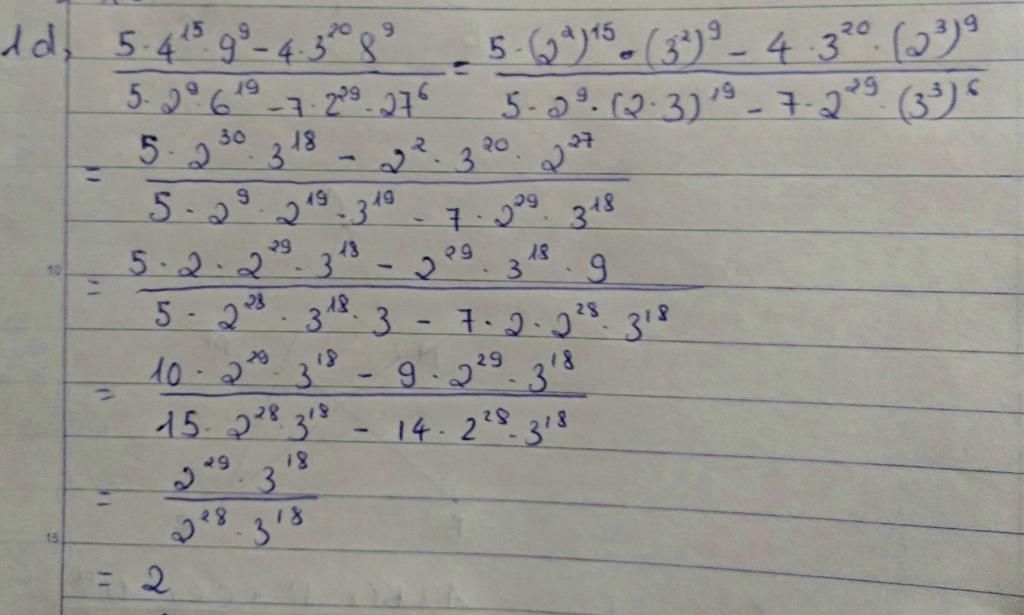 1d, (5·4^15·9^9 - 4·3^20 8^9)/(5·2^9·6^19 - 7·2^29·27^6) = (5·(2^2)^15·(3^2)^9 - 4·3^20·(2^3)^9)/(5·2^9·(2·3)^19 - 7·2^29·(3^3)^6)
= (5·2^30·3^18 - 2^2·3^20·2^27)/(5·2^9·2^19·3^19 - 7·2^29·3^18)
10 = (5·2·2^29·3^18 - 2^29·3^18·9)/(5·2^28·3^18·3 - 7·2·2^28·3^18)
= (10·2^29·3^18 - 9·2^29·3^18)/(15·2^28·3^18 - 14·2^28·3^18)
= (2^29·3^18)/(2^28·3^18)
15
= 2